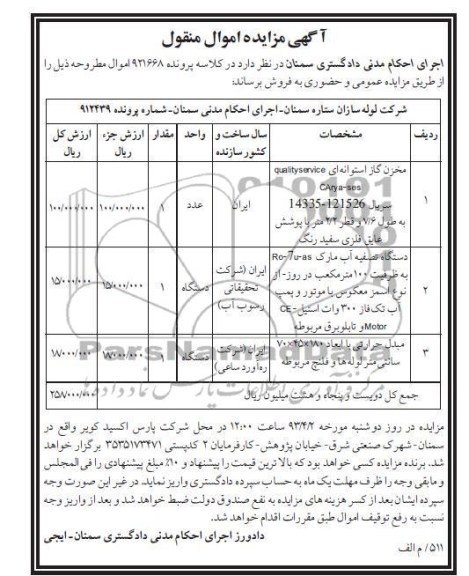 آگهی مزایده اموال منقول
اجرای احکام مدنی دادگستری سمنان در نظر دارد در کلاسه پرونده ۹۲۱۶۶۸ اموال مطروحه ذیل را
از طریق مزایده عمومی و حضوری به فروش برساند:
شرکت لوله سازان ستاره سمنان-اجرای احکام مدنی سمنان-شماره پرونده ۹۱۲۴۳۹
ردیف مشخصات سال ساخت و کشور سازنده واحد مقدار ارزش جزء ریال ارزش کل ریال
۱ مخزن گاز استوانه‌ای qualityservice
CArya-ses
سریال 121526-14335
به طول ۷/۶ و قطر ۲/۲ متر با پوشش
عایق فلزی سفید رنگ
ایران عدد ۱ ۱۰۰/۰۰۰/۰۰۰ ۱۰۰/۰۰۰/۰۰۰
۲ دستگاه تصفیه آب مارک Ro-7u-as
به ظرفیت ۱۰۰ مترمکعب در روز-از
نوع اسمز معکوس با موتور و پمپ
آب تک فاز ۳۰۰ وات استیل-CE
Motor و تابلوبرق مربوطه
ایران (شرکت تحقیقاتی رسوب آب) دستگاه ۱
۳ مبدل حرارتی با ابعاد ۱۸۰×۲۵×۷۰
سانتی متر لوله‌ها و فلنج مربوطه
ایران (شرکت ره‌آورد ساعی) دستگاه ۱
جمع کل دویست و پنجاه و هشت میلیون ریال
ParsNamadData
مرکز فرآوری اطلاعات پارس نماد داده‌ها
مزایده در روز دوشنبه مورخه ۹۳/۴/۲ ساعت ۱۲:۰۰ در محل شرکت پارس اکسید کویر واقع در
سمنان- شهرک صنعتی شرق- خیابان پژوهش- کارفرمایان ۲ کدپستی ۳۵۳۵۱۷۳۴۷۱ برگزار خواهد
شد. برنده مزایده کسی خواهد بود که بالاترین قیمت را پیشنهاد و ۱۰٪ مبلغ پیشنهادی را فی المجلس
و مابقی وجه را ظرف مهلت یک ماه به حساب سپرده دادگستری واریز نماید. در غیر این صورت وجه
سپرده ایشان بعد از کسر هزینه های مزایده به نفع صندوق دولت ضبط خواهد شد و بعد از واریز وجه
نسبت به رفع توقیف اموال طبق مقررات اقدام خواهد شد.
دادورز اجرای احکام مدنی دادگستری سمنان- ایجی
۵۱۱/ م الف